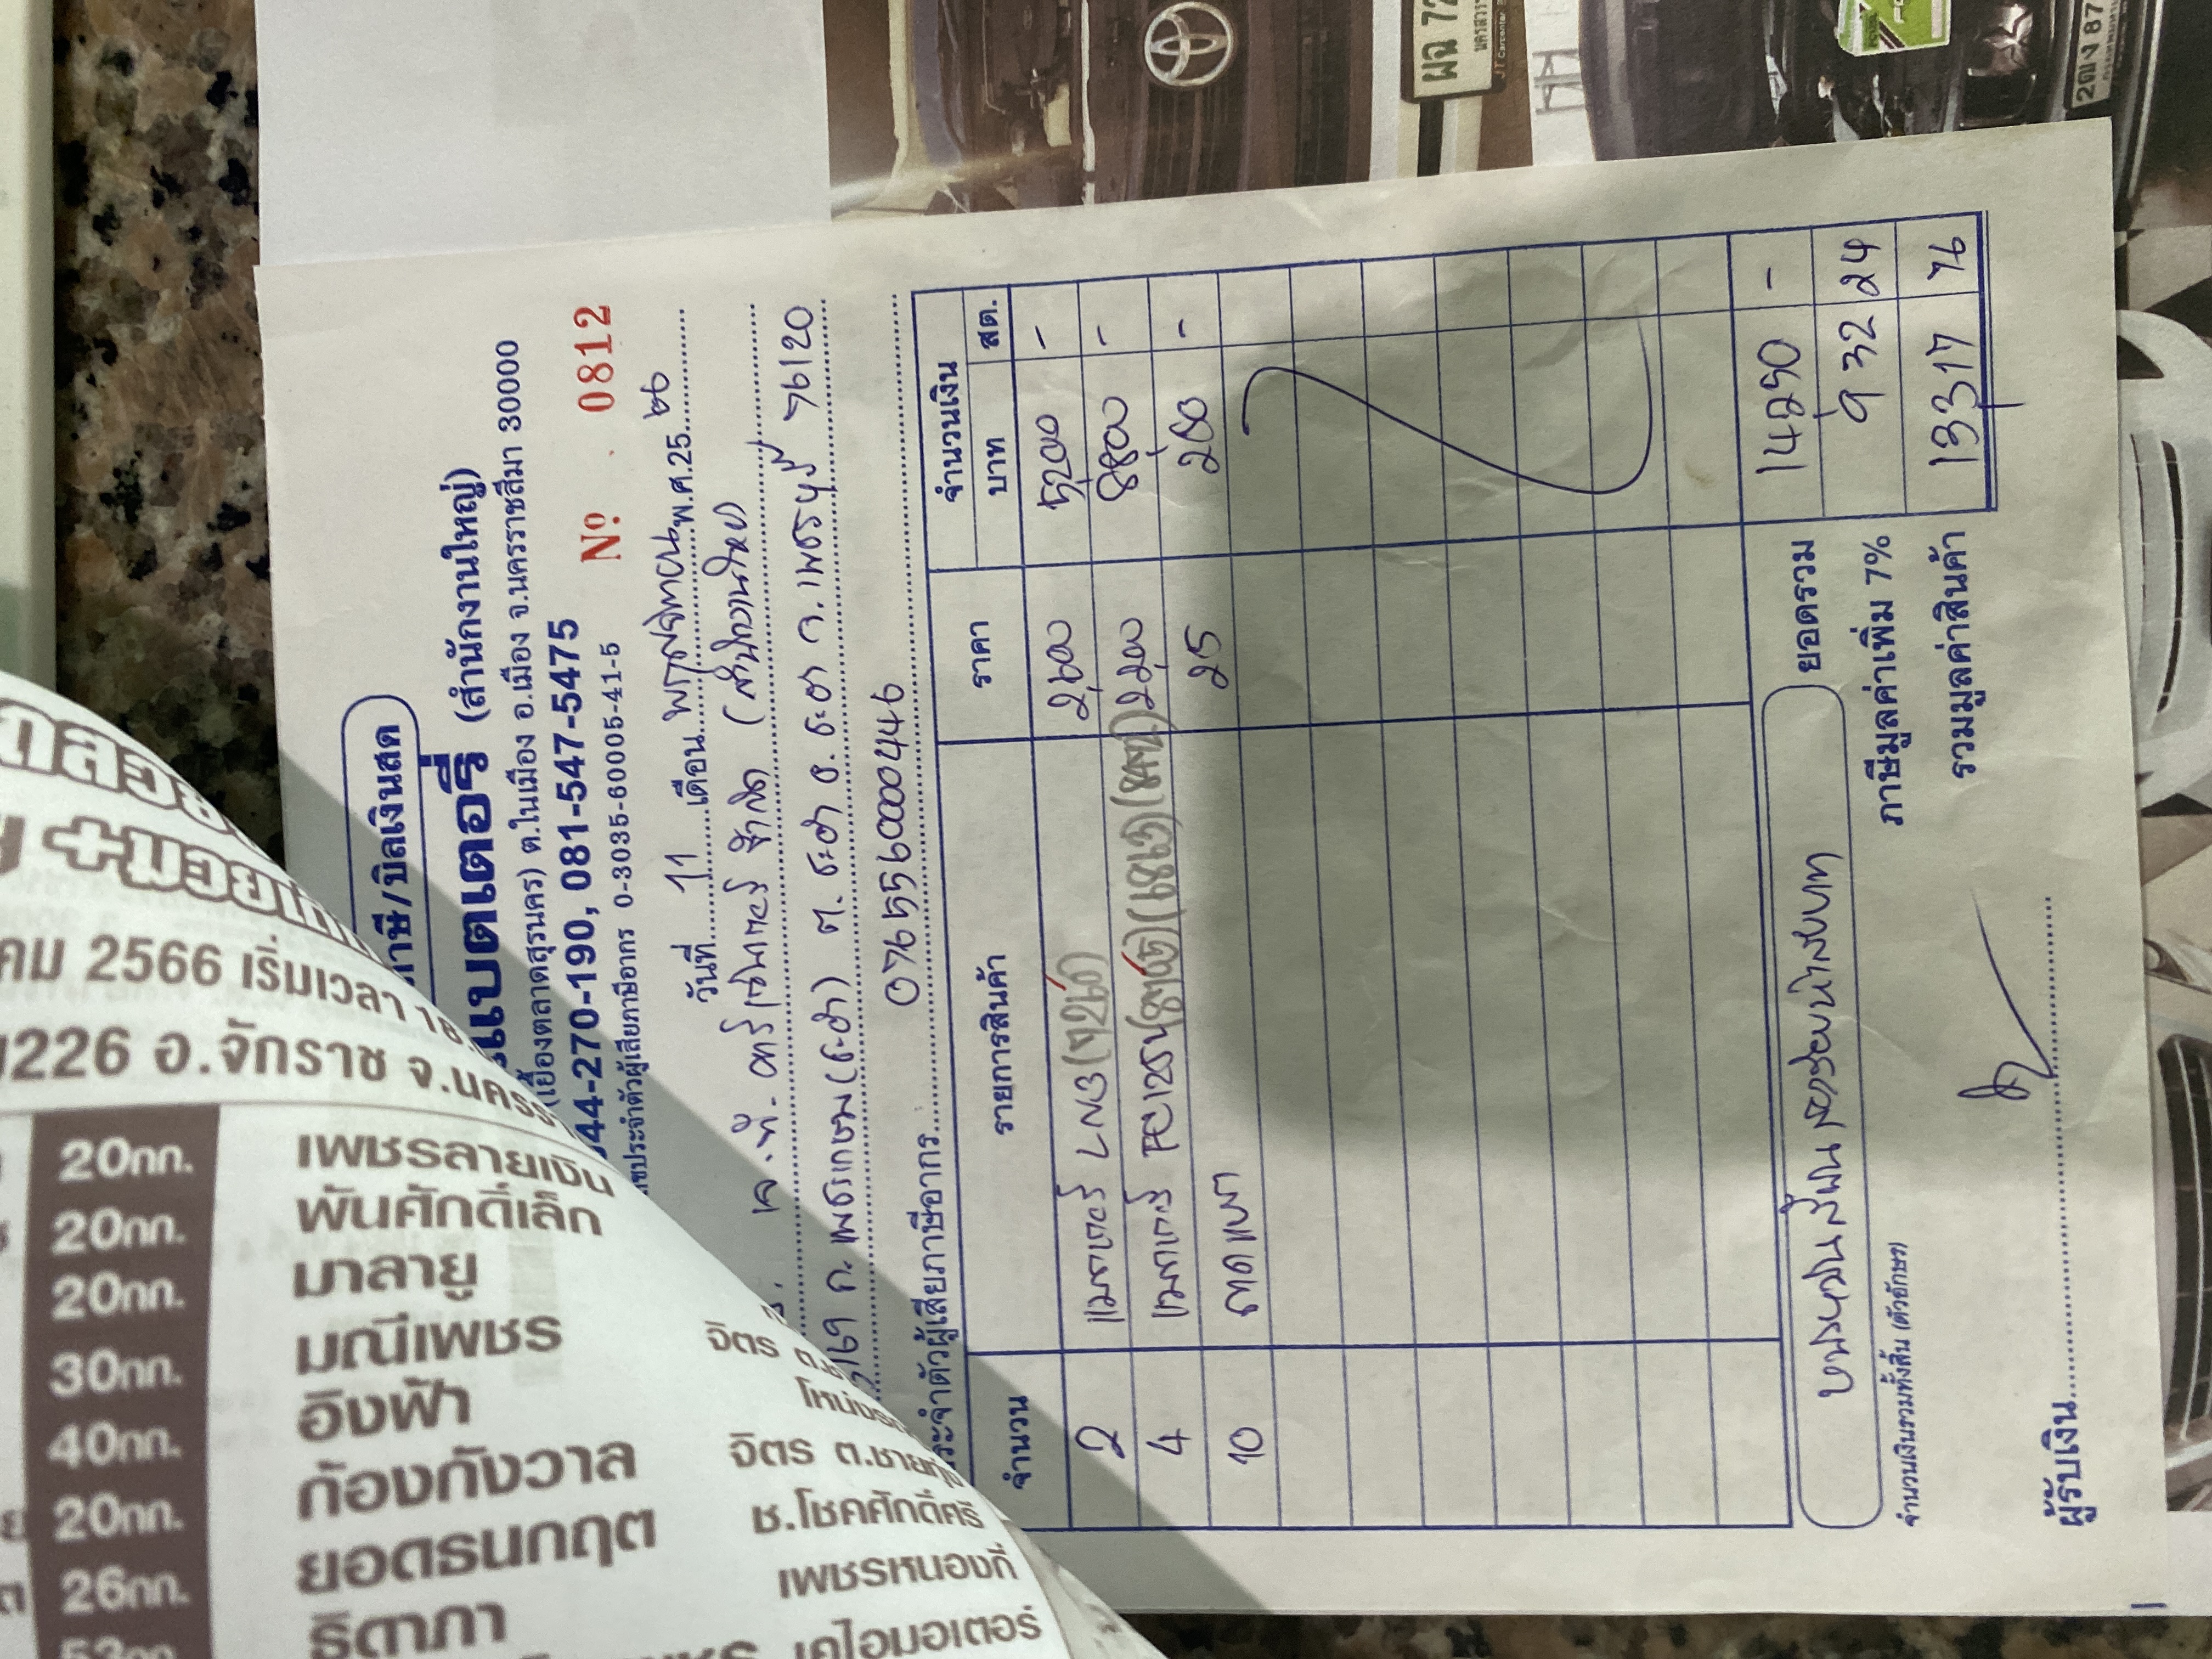 ภาษี/บิลเงินสด
แบตเตอรี่ (สำนักงานใหญ่)
(เยื้องตลาดสุรนคร) ต.ในเมือง อ.เมือง จ.นครราชสีมา 30000
044-270-190, 081-547-5475
ขประจำตัวผู้เสียภาษีอากร 0-3035-60005-41-5
Nº 0812
วันที่ 11 เดือน พฤศจิกายน พ.ศ.25 66
เค.ที. คาร์เซนเตอร์ จำกัด (สำนักงานใหญ่)
ถ.เพชรเกษม (ชะอำ) ต.ชะอำ อ.ชะอำ จ.เพชรบุรี 76120
ระจำตัวผู้เสียภาษีอากร 0765560000446
จำนวน รายการสินค้า ราคา จำนวนเงิน
บาท สต.
2 LN3 2,600 5,200 -
4 2,200 8,800 -
10 25 250 -
ยอดรวม 14,250 -
ภาษีมูลค่าเพิ่ม 7% 932 24
รวมมูลค่าสินค้า 13317 76
หนึ่งหมื่นสี่พันสองร้อยห้าสิบบาท
จำนวนเงินรวมทั้งสิ้น (ตัวอักษร)
ผู้รับเงิน
+มวย
คม 2566 เริ่มเวลา 18.
226 อ.จักราช จ.นคร
20กก. เพชรลายเงิน
20กก. พันศักดิ์เล็ก
20กก. มาลายู
30กก. มณีเพชร
40กก. อิงฟ้า
20กก. ก้องกังวาล
26กก. ยอดธนกฤต
ธิดาภา
จิตร
จิตร
ช.โชคศักดิ์ศรี
เพชรหนองกี่
เคไอมอเตอร์
ผฉ 72
นครสวรร
2ฒง 87